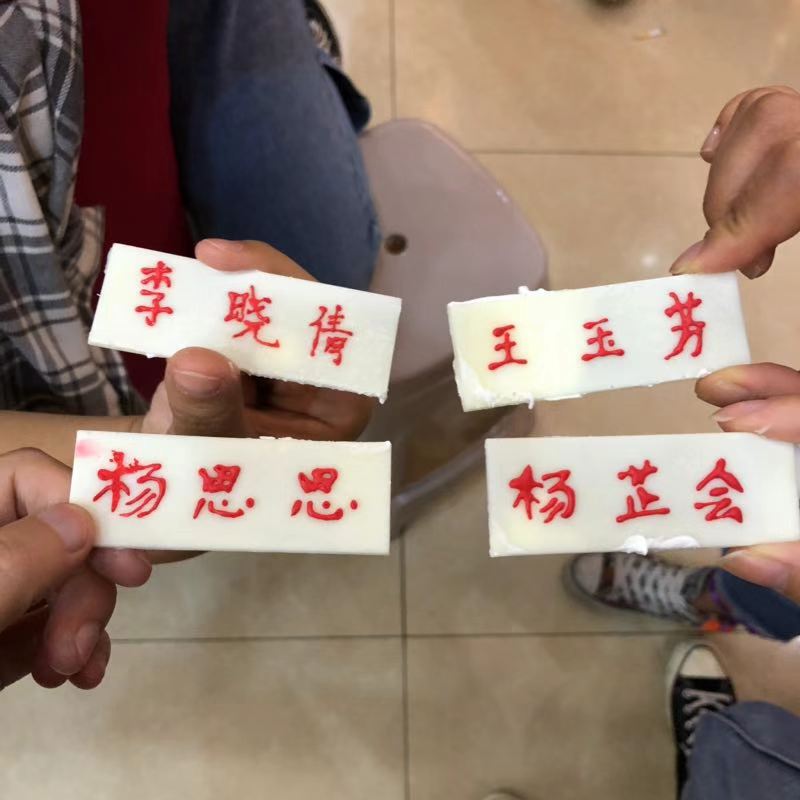 李晓倩
王玉芳
杨思思
杨芷会